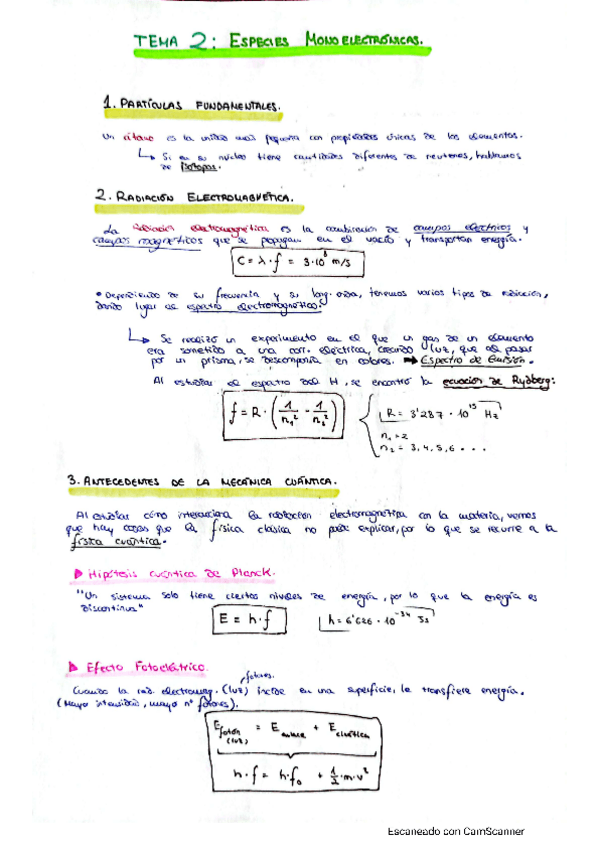 TEMA 2: ESPECIES MONOELECTRÓNICAS.
1. PARTÍCULAS FUNDAMENTALES.
Un átomo es la unidad más pequeña con propiedades únicas de los elementos.
↳ Si en su núcleo tiene cantidades diferentes de neutrones, hablamos
de isótopos.
2. RADIACIÓN ELECTROMAGNÉTICA.
La radiación electromagnética es la combinación de campos eléctricos y
campos magnéticos que se propagan en el vacío y transportan energía.
C = λ · f = 3·10⁸ m/s
• Dependiendo de su frecuencia y su long. onda, tenemos varios tipos de radiación,
dando lugar al espectro electromagnético.
↳ Se realizó un experimento en el que un gas de un elemento
era sometido a una corr. eléctrica, creando luz, que al pasar
por un prisma, se descomponía en colores. → Espectro de Emisión.
Al estudiar el espectro del H, se encontró la ecuación de Rydberg:
f = R · (1/n₁² - 1/n₂²)
R = 3'287 · 10¹⁵ Hz
n₁ = 2
n₂ = 3, 4, 5, 6 . . .
3. ANTECEDENTES DE LA MECÁNICA CUÁNTICA.
Al estudiar cómo interacciona la radiación electromagnética con la materia, vemos
que hay cosas que la física clásica no puede explicar, por lo que se recurre a la
física cuántica.
▷ Hipótesis cuántica de Planck.
"Un sistema solo tiene ciertos niveles de energía, por lo que la energía es
discontinua"
E = h·f
h = 6'626 · 10⁻³⁴ Js
▷ Efecto Fotoeléctrico.
fotones.
Cuando la rad. electromag. (luz) incide en una superficie, le transfiere energía.
(Mayor intensidad, mayor nº fotones).
E fotón (luz) = E + E cinética
h·f = h·f₀ + 1/2·m·v²
Escaneado con CamScanner